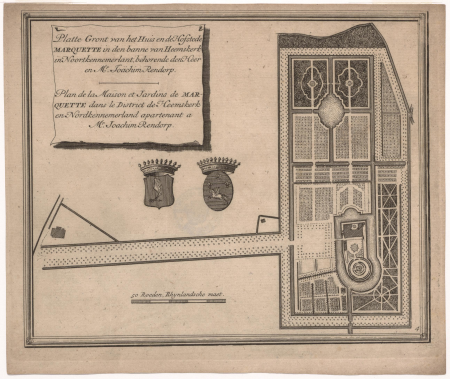 Platte Gront van het Huis en de Hofstede
MARQUETTE in den banne van Heemskerk
in Noortkennemerlant, behorende den Heer
en Mr. Joachim Rendorp.
Plan de la Maison et Jardins de MAR-
QUETTE dans le District de Heemskerk
en Nordkennemerland apartenant a
Mr. Joachim Rendorp.
50 Roeden, Rhynlandsche maet.
4